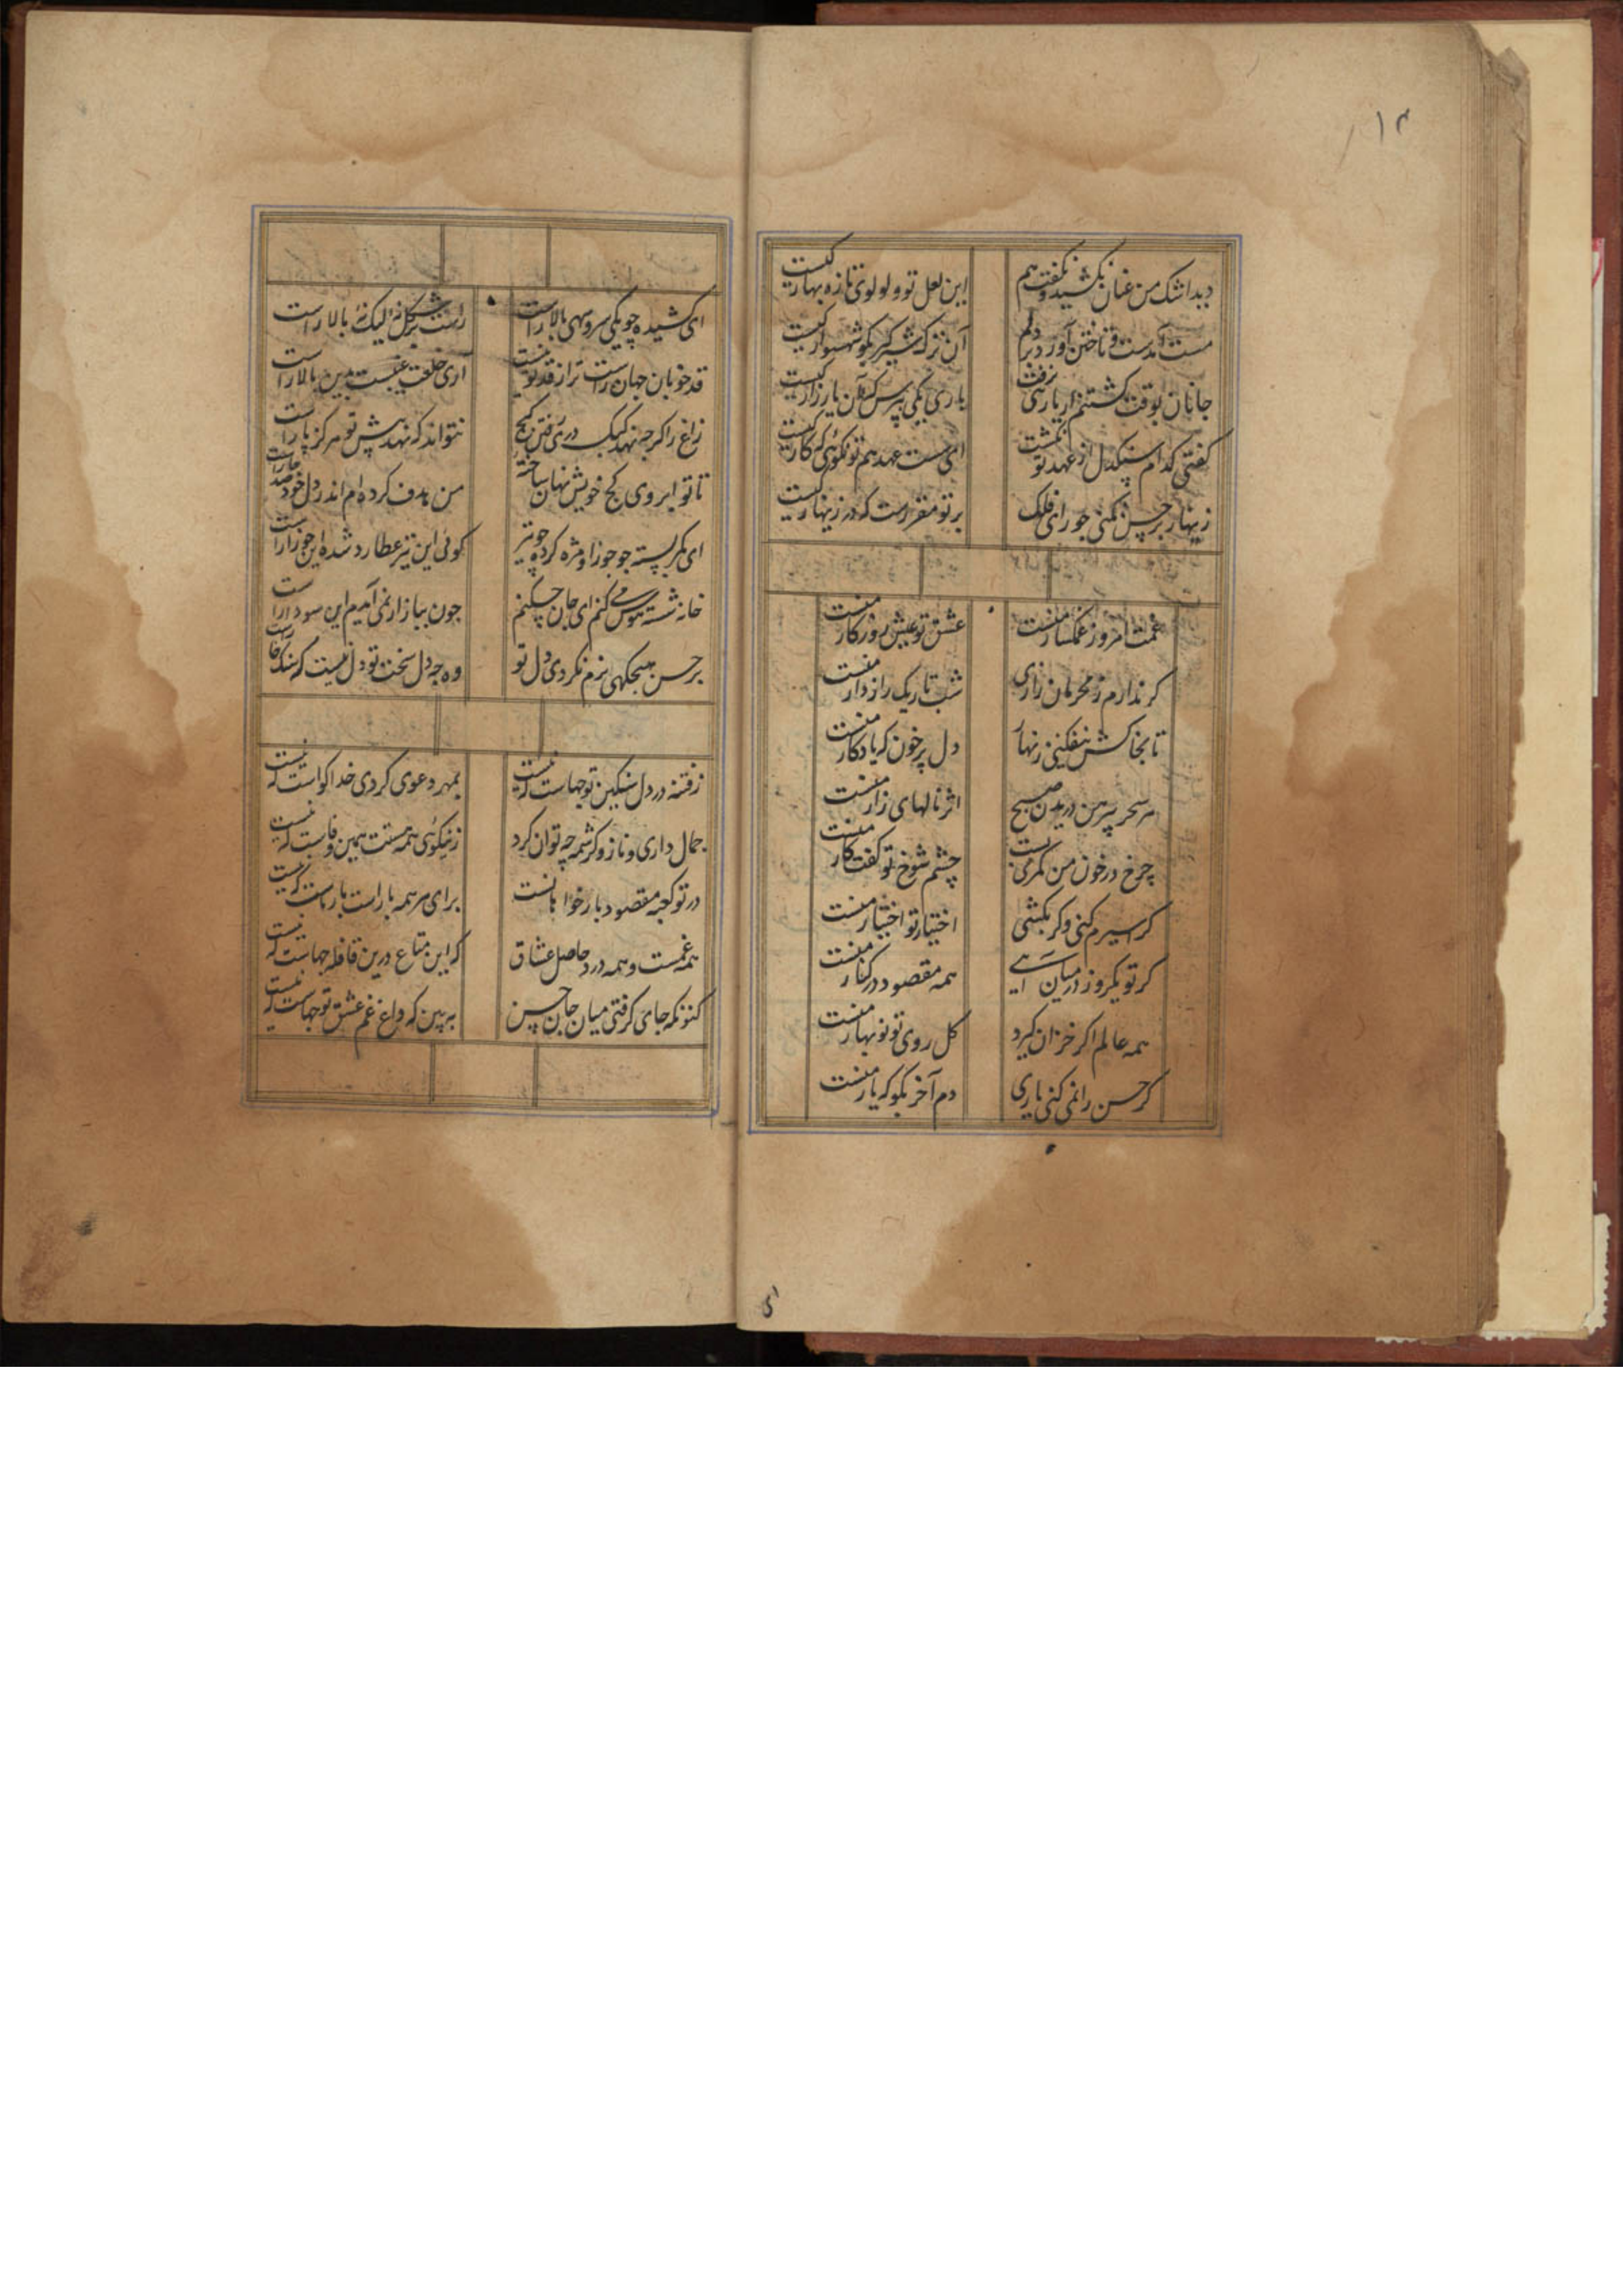 ۱۳
دید اشک من عنان نکشید و نگفت هم این لعل تو و لولوی تازه بهار کیست
مست آمدست و تاختن آورد بر دلم آن ترک شیرگیر بگو شهسوار کیست
جانان بوقت کشتنم ار یار شی نرفت باری یکی بپرس که آن یار زار کیست
گفتی کدام سنگدل از عهد تو بگشت ای سست عهد هم تو نکوئی که کار کیست
زینهار بر حسن نکنی جور ای فلک بر تو مقررست که در زینهار کیست
غمت امروز غمگسار منست عشق تو عیش روزگار منست
گر ندارم ز محرمان رازی شب تاریک رازدار منست
تا بخاکش نیفکنی زنهار دل پر خون که یادگار منست
هر سحر پیرهن دریدن صبح اثر نالهای زار منست
چرخ در خون من کمر می بست چشم شوخ تو گفت کار منست
گر اسیرم کنی و گر بکشی اختیار تو اختیار منست
گر تو یکروز در میان آیی همه مقصود در کنار منست
همه عالم اگر خزان گیرد گل روی تو نوبهار منست
گر حسن را نمی کنی یاری دم آخر بگو که یار منست
ای
ای کشیده چو یکی سرو سهی بالا راست راست بر شکل نه لیک نه بالا راست
قد خوبان جهان راست تر از قد تو نیست آری خلقت عیبست بدین بالا راست
زاغ را گرچه نهد کبک دری رفتن کج نتواند که نهد پیش تو هرگز پا راست
تا تو ابروی کج خویش نهان ساخته من هدف کرده ام اندر دل خود صد جا راست
ای کمر بسته چو جوزا و مژه کرده چو تیر گوئی این تیر عطارد شده این جوزا راست
خانه شسته هوس می کنم ای جان چکنم چون ببازار نمی آیم این سودا راست
بر حسن هیچگهی نرم نکردی دل تو وه چه دل سخت تو دل نیست که سنگ خاراست
ز فتنه در دل سنگین تو چهاست که نیست بمهر دعوی کردی خدا گواست که نیست
جمال داری و ناز و کرشمه چه توان کرد ز نیکوئی همه هستت همین وفاست که نیست
در تو کعبه مقصود بار خواهانست برای هر همه بار است بار ماست که نیست
همه غمست و همه درد حاصل عشاق که این متاع درین قافله چهاست که نیست
کنونکه جای گرفتی میان جان حسن ببین که داغ غم عشق تو چهاست که نیست